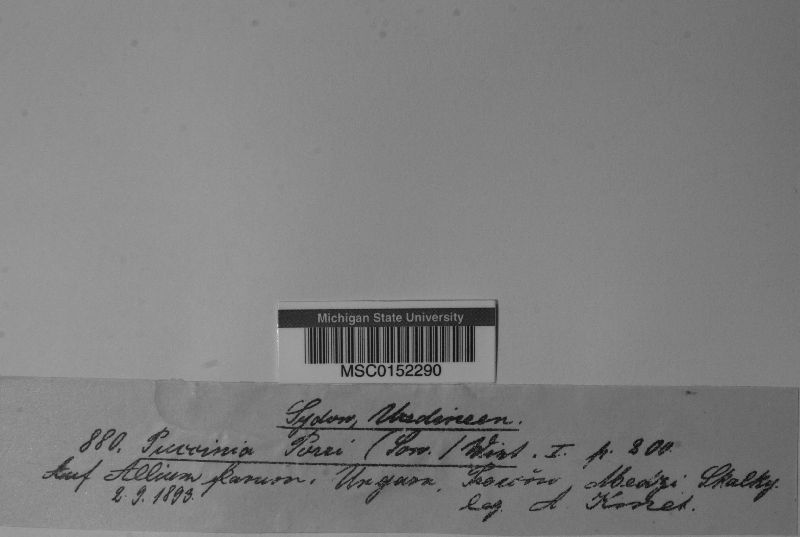 Michigan State University
MSC0152290
Sydow, Uredineen.
880. Puccinia Porri (Sow.) Wint. I. p. 200.
Auf Allium flavum. Ungarn, Medzi Skalky.
2. 9. 1893. leg. A Kmet.